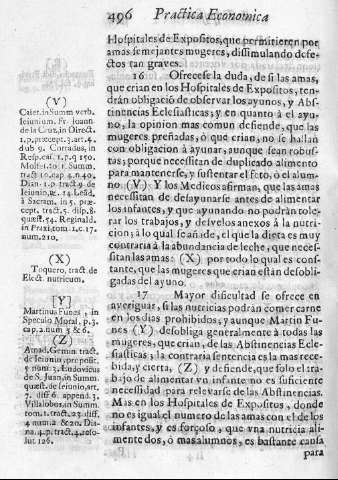 496 Practica Economica
Hospitales de Expositos, que permitieren por
amas semejantes mugeres, dissimulando defe-
ctos tan graves.
16 Ofrecese la duda, de si las amas,
que crian en los Hospitales de Expositos, ten-
drán obligació de observar los ayunos, y Abs-
tinencias Eclesiasticas; y en quanto á el ayu-
no, la opinion mas comun defiende, que las
mugeres preñadas, ó que crian, no se hallan
con obligacion à ayunar, aunque sean robus-
tas; porque necessitan de duplicado alimento
para mantenerse, y sustentar el feto, ò el alum-
no. (V) Y los Medicos afirman, que las amas
necessitan de desayunarse antes de alimentar
los infantes, y que ayunando no podràn tole-
rar los trabajos, y desvelos anexos à la nutri-
cion; à lo qual se añade, el que la dieta es muy
contraria á la abundancia de leche, que neces-
sitan las amas: (X) por todo lo qual es cons-
tante, que las mugeres que crian están desobli-
gadas del ayuno.
17 Mayor dificultad se ofrece en
averiguar, si las nutrices podrán comer carne
en los dias prohibidos, y aunque Martin Fu-
nes (Y) desobliga generalmente à todas las
mugeres, que crian, de las Abstinencias Ecle-
siasticas; la contraria sentencia es la mas rece-
bida, y cierta, (Z) y defiende, que solo el tra-
bajo de alimentar vn infante no es suficiente
necessidad para relevarse de las Abstinencias.
Mas en los Hospitales de Expositos, donde
no es igual el numero de las amas con el de los
infantes, y es forçoso, que vna nutricia ali-
mente dos, ò mas alumnos, es bastante causa
para
(V)
Caiet. in Summ. verb.
Ieiunium. Fr. Ioann.
de la Cruz, in Direct.
1. p. præcept. 3. art. 4.
dub. 9. Corradus, in
Resp. cas. 1. p. q 150.
tract 10. cap 4. n. 40.
Dian. 1. p tract 9 de
à Sacram. in 5. præ-
cept. tract. 5. disp. 8.
quæst. 54. Reginald.
in Praxi, tom. 1. c. 17.
num. 210.
(X)
Toquero, tract de
Elect. nutricum.
[Y]
Martinus Funes, in
Speculo Moral, p. 3.
cap. 2. num 3 & 6.
(Z)
de Ieiunio, præposit.
5 num. 3. Ludovicus
de S. Juan, in Summ.
quæst. de Ieiunio, art.
7. diff 6. append. 3.
Villalobos, in Summ.
tom. 1. tract. 23. diff.
4 num. 2 & 20. Dia-
na. 4. p. tract. 4. reso-
lut 126.